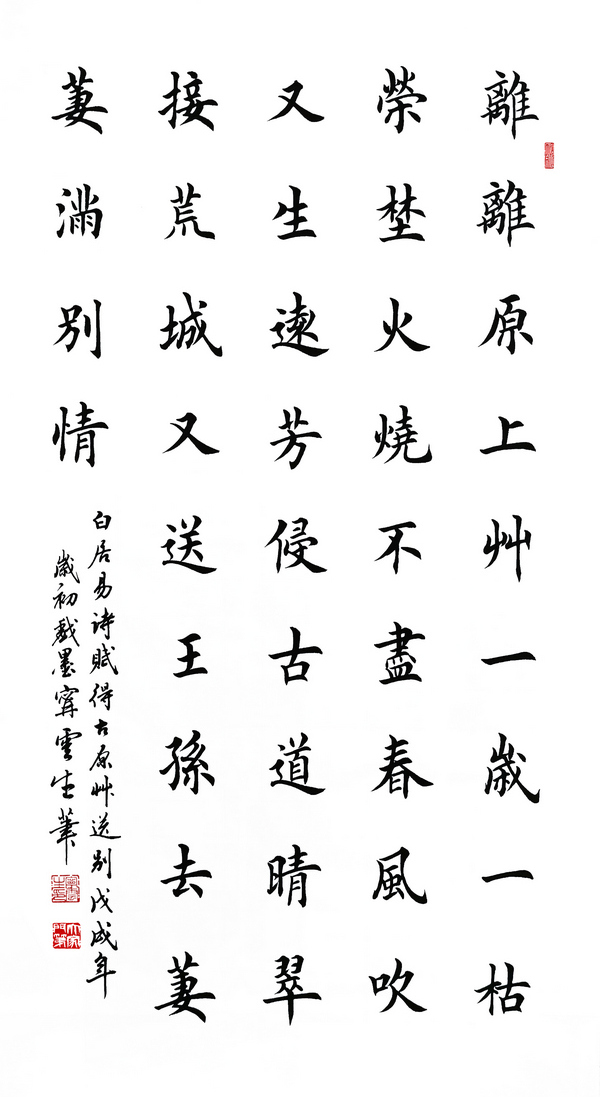 離離原上艸一歲一枯
榮埜火燒不盡春風吹
又生遠芳侵古道晴翠
接荒城又送王孫去萋
萋滿別情
白居易诗賦得古原艸送别戊戌年
歲初戲墨寗雲生筆